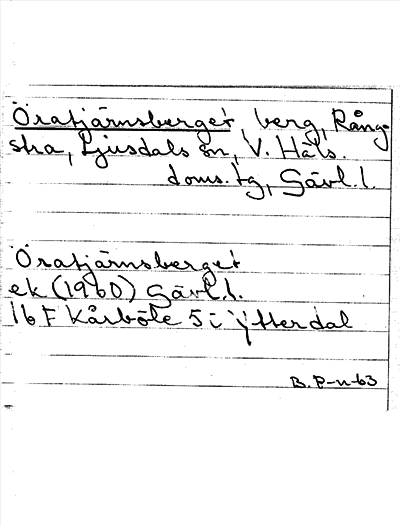 Öratjärnsberget, berg, Rång-
stra, Ljusdals sn, V. Häls.
doms. tg, Gävl. l.
Öratjärnsberget
ek (1960) Gävl. l.
16 F Kårböle 5 i Ytterdal
B. P-n-63